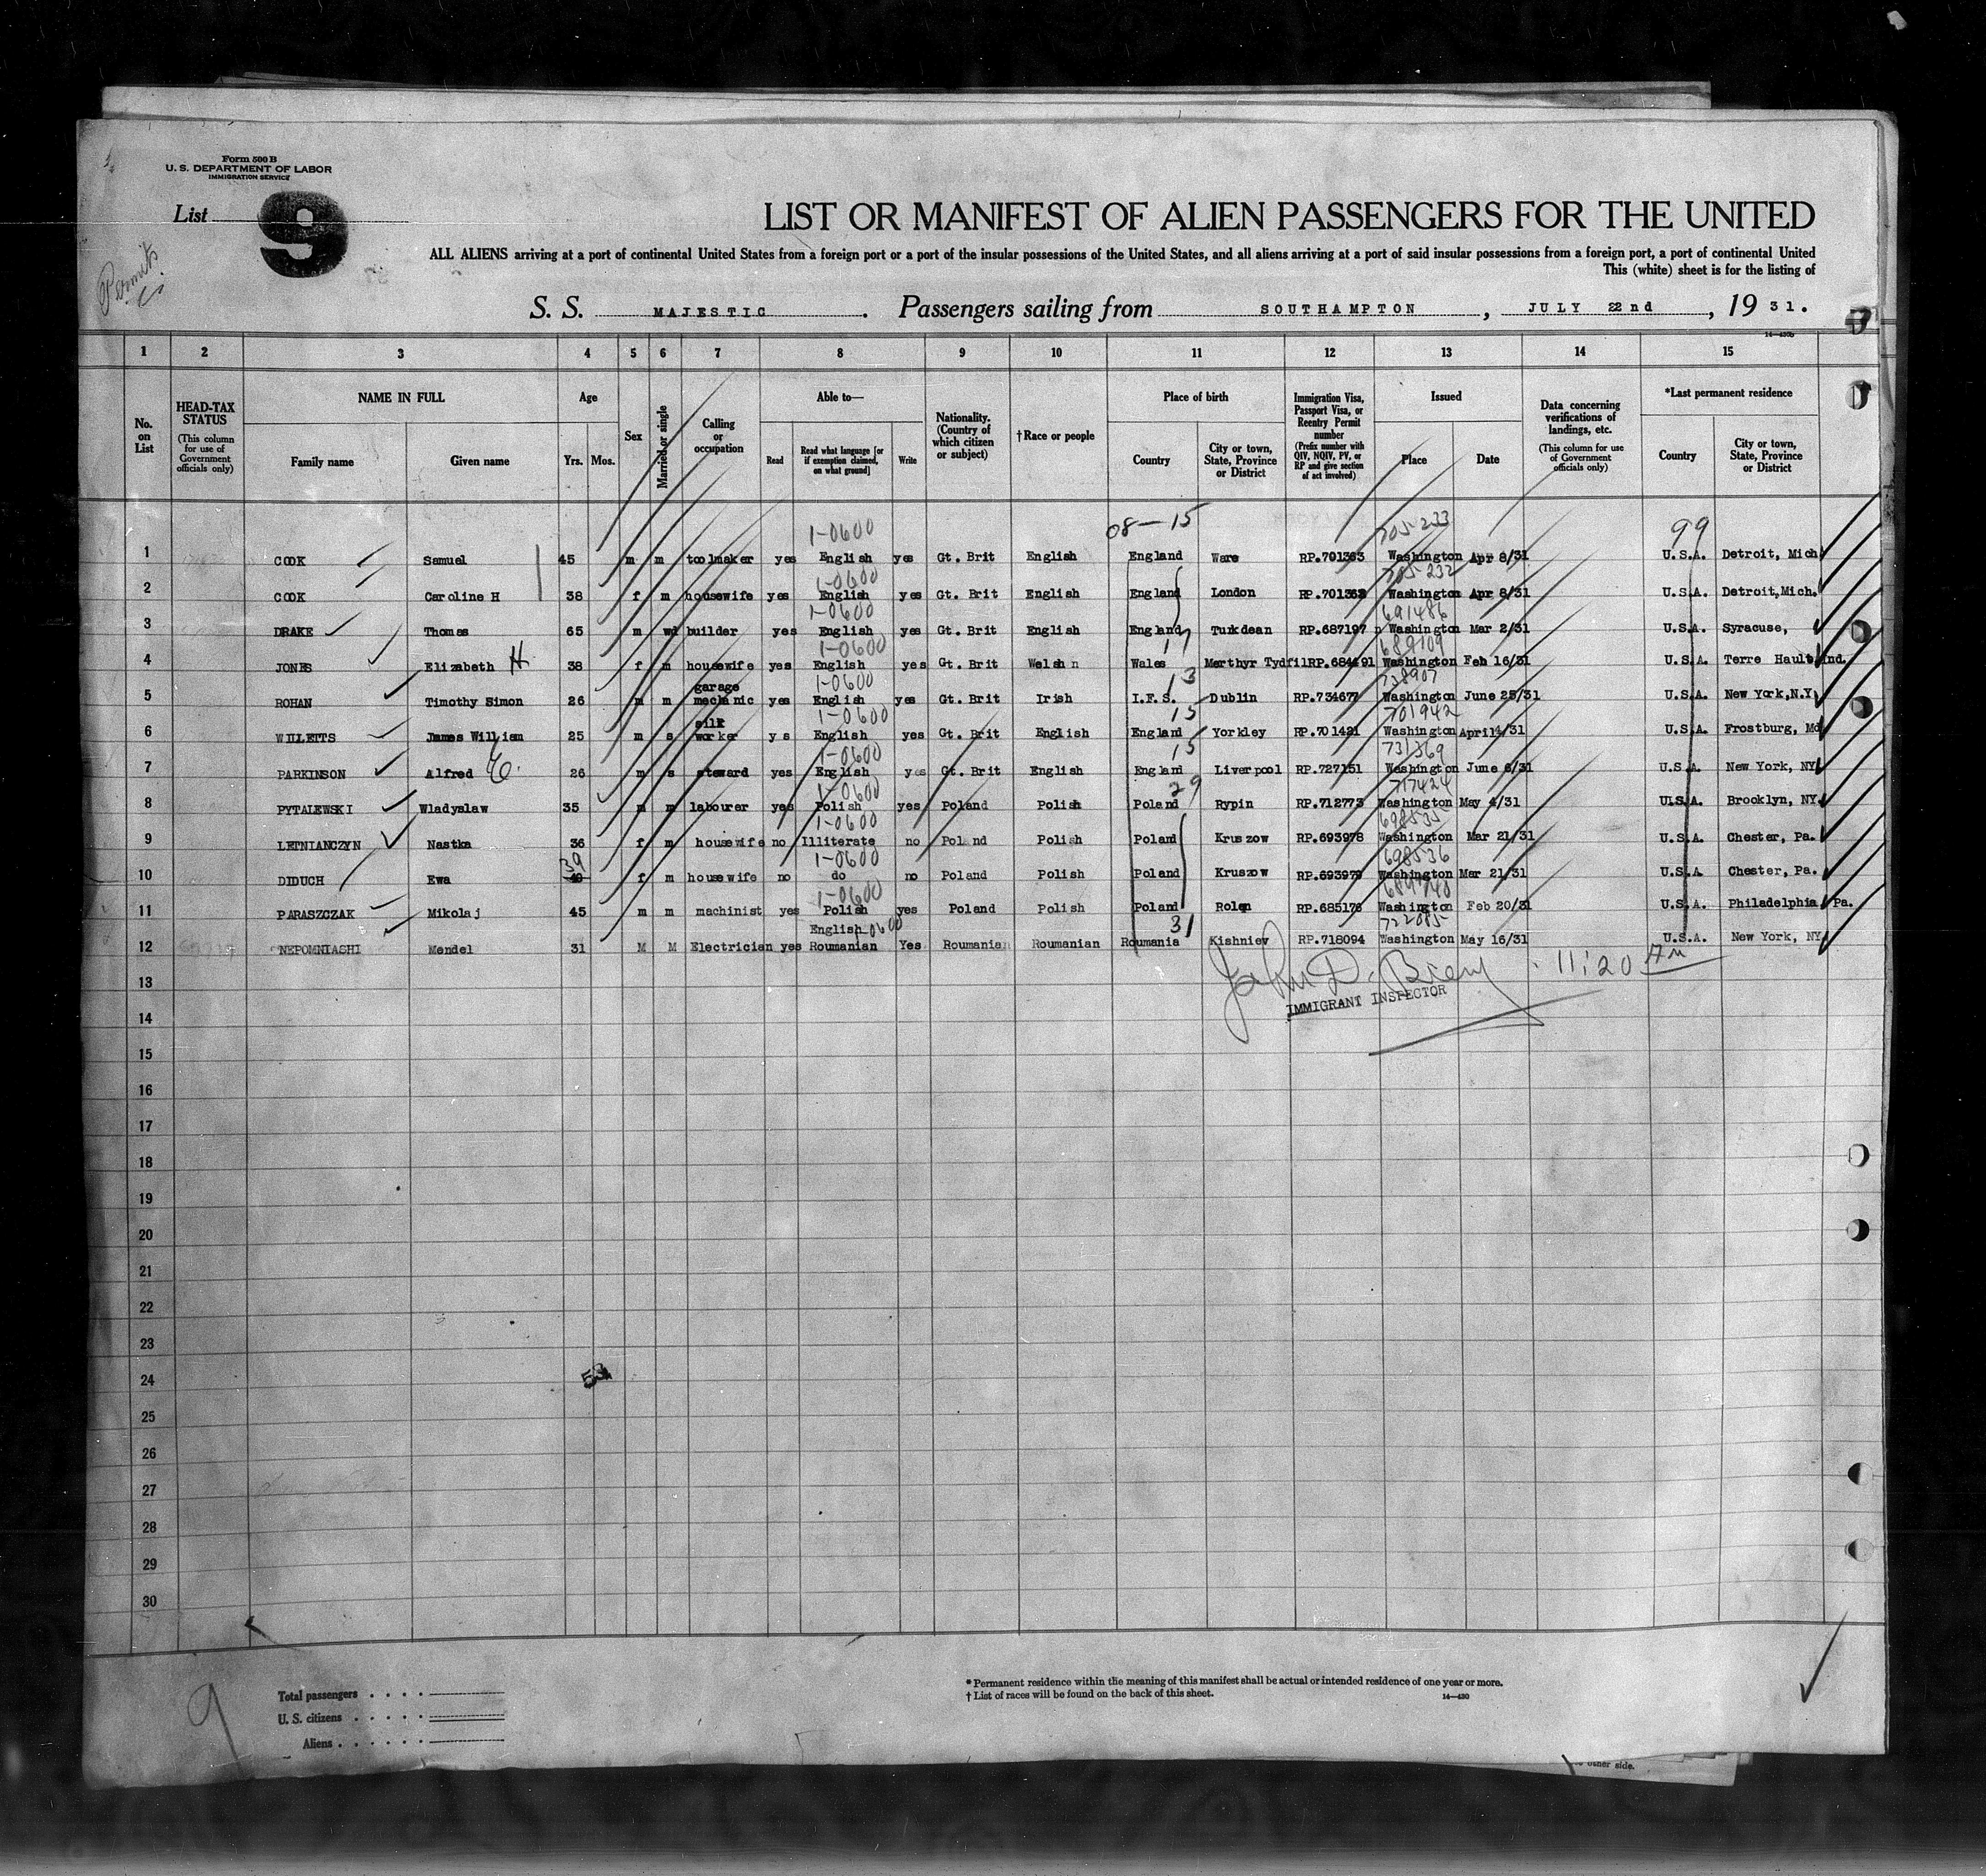 Form 500 B
U. S. DEPARTMENT OF LABOR
IMMIGRATION SERVICE
List 9
Permits
LIST OR MANIFEST OF ALIEN PASSENGERS FOR THE UNITED
ALL ALIENS arriving at a port of continental United States from a foreign port or a port of the insular possessions of the United States, and all aliens arriving at a port of said insular possessions from a foreign port, a port of continental United
This (white) sheet is for the listing of
S. S. MAJESTIC. Passengers sailing from SOUTHAMPTON, JULY 22nd, 19 31.
14—430b
1 2 3 4 5 6 7 8 9 10 11 12 13 14 15
No. on List
HEAD-TAX STATUS (This column for use of Government officials only)
NAME IN FULL Family name Given name
Age Yrs. Mos.
Sex
Married or single
Calling or occupation
Able to— Read Read what language [or if exemption claimed, on what ground] Write
Nationality. (Country of which citizen or subject)
†Race or people
Place of birth Country City or town, State, Province or District
Immigration Visa, Passport Visa, or Reentry Permit number (Prefix number with QIV, NQIV, PV, or RP and give section of act involved)
Issued Place Date
Data concerning verifications of landings, etc. (This column for use of Government officials only)
*Last permanent residence Country City or town, State, Province or District
1-0600 08-15 705233 99
1 COOK Samuel 45 m m toolmaker yes English yes Gt. Brit English England Ware RP.701363 Washington Apr 8/31 U.S.A. Detroit, Mich
1-0600 705232
2 COOK Caroline H 38 f m housewife yes English yes Gt. Brit English England London RP.701362 Washington Apr 8/31 U.S.A. Detroit, Mich.
1-0600 691486
3 DRAKE Thomas 65 m wd builder yes English yes Gt. Brit English England Turkdean RP.687197 Washington Mar 2/31 U.S.A. Syracuse,
1-0600 17 689109
4 JONES Elizabeth H 38 f m housewife yes English yes Gt. Brit Welsh Wales Merthyr Tydfil RP.684491 Washington Feb 16/31 U.S.A. Terre Haute Ind.
1-0600 13 738907
5 ROHAN Timothy Simon 26 m m garage mechanic yes English yes Gt. Brit Irish I.F.S. Dublin RP.734677 Washington June 25/31 U.S.A. New York, N.Y.
1-0600 15 701942
6 WILLETTS James William 25 m s silk worker y s English yes Gt. Brit English England Yorkley RP.701421 Washington April 4/31 U.S.A. Frostburg, Md
1-0600 15 731369
7 PARKINSON Alfred E. 26 m s steward yes English yes Gt. Brit English England Liverpool RP.727151 Washington June 6/31 U.S.A. New York, NY
1-0600 29 717424
8 PYTALEWSKI Wladyslaw 35 m m labourer yes Polish yes Poland Polish Poland Rypin RP.712773 Washington May 4/31 U.S.A. Brooklyn, NY.
1-0600 698535
9 LETNIANCZYN Nastka 36 f m housewife no Illiterate no Poland Polish Poland Kruszow RP.693978 Washington Mar 21/31 U.S.A. Chester, Pa.
39 1-0600 698536
10 DIDUCH Ewa 40 f m housewife no do no Poland Polish Poland Kruszow RP.693979 Washington Mar 21/31 U.S.A. Chester, Pa.
1-0600
11 PARASZCZAK Mikolaj 45 m m machinist yes Polish yes Poland Polish Poland RP.685176 Washington Feb 20/31 U.S.A. Philadelphia Pa.
English 0600 31 722085
12 NEPOMNIASHI Mendel 31 M M Electrician yes Roumanian Yes Roumania Roumanian Roumania Kishniev RP.718094 Washington May 16/31 U.S.A. New York, NY
13 11:20 AM
IMMIGRANT INSPECTOR
14
15
16
17
18
19
20
21
22
23
24
53
25
26
27
28
29
30
9
Total passengers
U. S. citizens
Aliens
* Permanent residence within the meaning of this manifest shall be actual or intended residence of one year or more.
† List of races will be found on the back of this sheet.
14—430
other side.